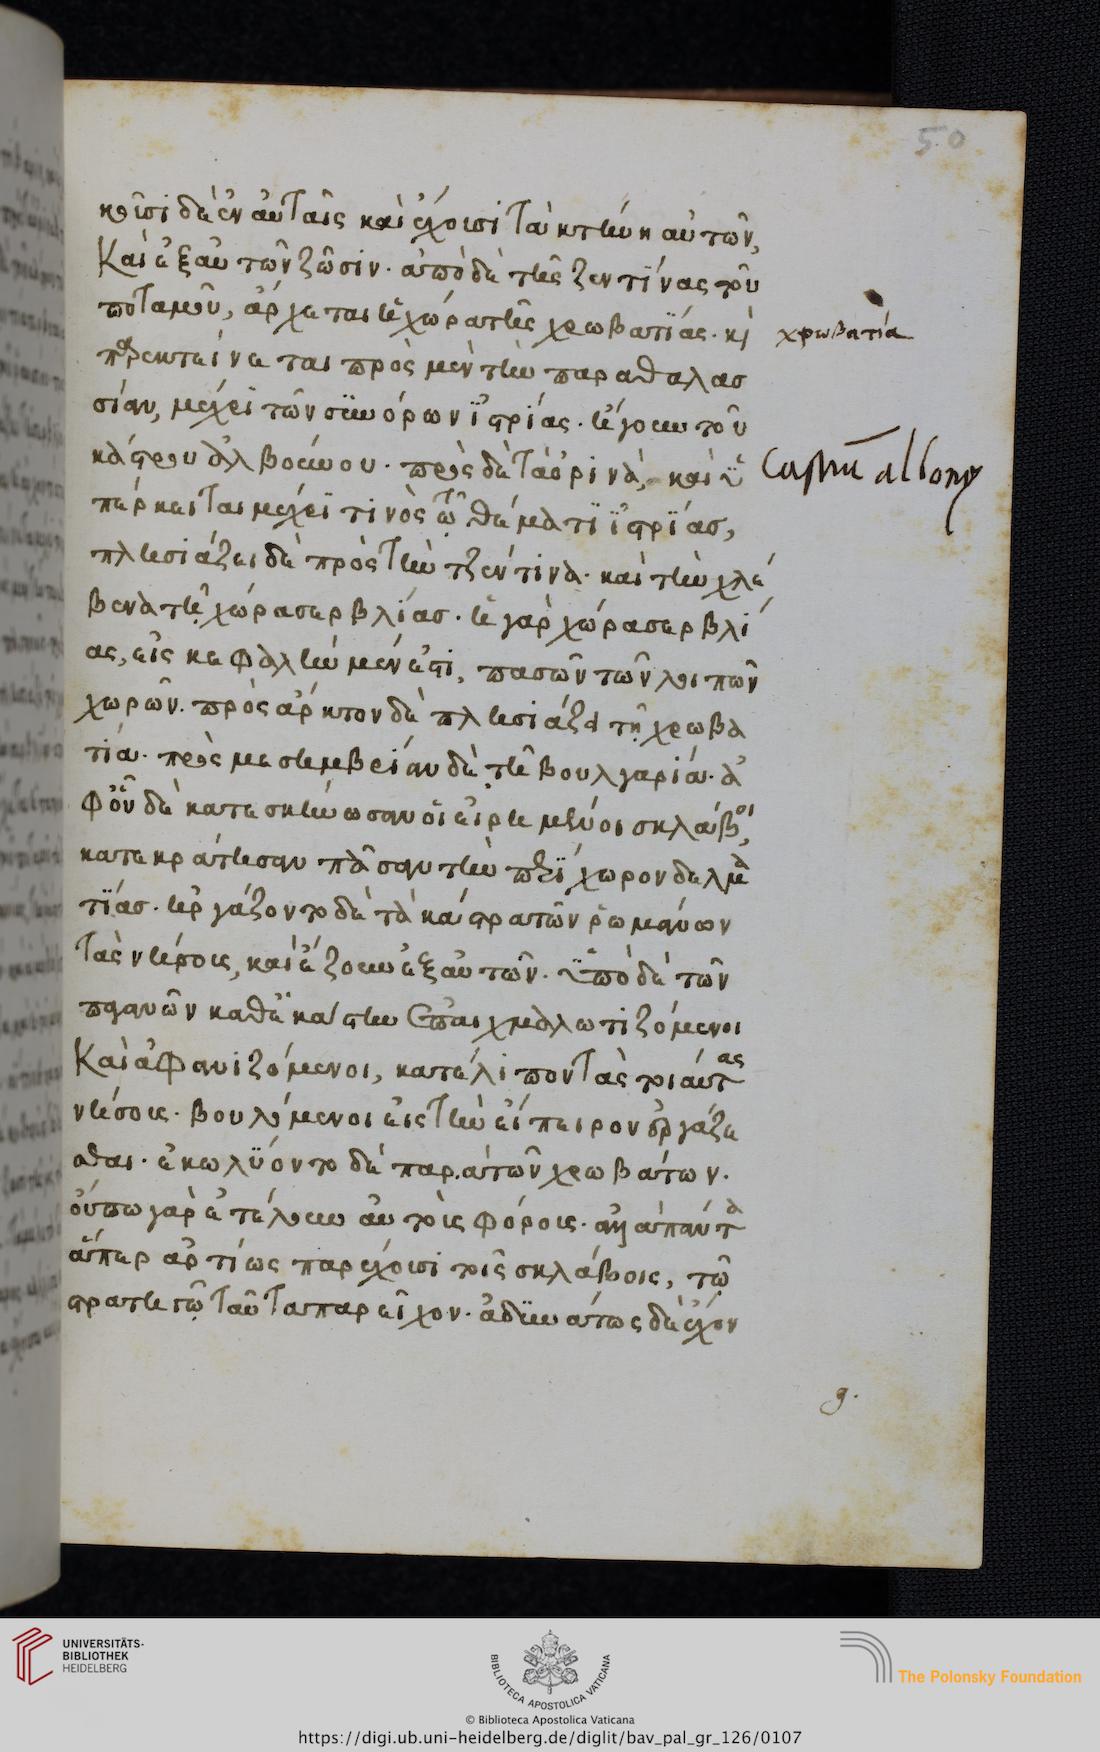 50
κοῦσι δὲ ἐν αὐταῖς καὶ ἔχουσι τὰ κτήνη αὐτῶν,
Καὶ ἐξ αὐτῶν ζῶσιν. ἀπὸ δὲ τῆς ζεντίνας τοῦ
ποταμοῦ, ἄρχεται ἡ χώρα τῆς χρωβατΐας. κὶ
παρεκτείνεται πρὸς μὲν τὴν παραθαλασ
σίαν, μέχρϊ τῶν συνόρων ἰστρίας. ἤγουν τοῦ
κάστρου ἀλβούνου. πρὸς δὲ τὰ ὀρινὰ, καὶ ὑ
πέρκειται μέχρϊ τινὸς τῷ θέματϊ ἰστρΐας,
πλησιάζει δὲ πρὸς τὴν τζέντινα. καὶ τὴν χλέ
βενα τῇ χώρα σερβλίας. ἡ γὰρ χώρα σερβλί
ας, εἰς κεφαλὴν μέν ἐστι, πασῶν τῶν λοιπῶν
χωρῶν. πρὸς ἄρκτον δὲ πλησιάζει τῇ χρωβα
τία. πρὸς μεσημβρίαν δὲ τῇ βουλγαρία. ἀ
φοῦ δὲ κατεσκήνωσαν οἱ εἰρημένοι σκλάβοι,
κατεκράτησαν πᾶσαν τὴν περϊχωρον δελμα
τΐας. ἠργάζοντο δὲ τὰ κάστρα τῶν ῥωμαίων
τὰς νήσους, καὶ ἔζουν ἐξ αὐτῶν. ὑπὸ δὲ τῶν
παγανῶν καθ' ἑκάστην ἐπαιχμαλωτιζόμενοι
Καὶ ἀφανιζόμενοι, κατέλιπον τὰς τοιαύτας
νήσους. βουλόμενοι εἰς τὴν εἴπειρον ἐργάζε
σθαι. ἐκωλύοντο δὲ παρα τῶν χρωβάτων.
οὔπω γὰρ ἐτέλουν αὐτοῖς φόρους. ἀλλ' ἅπαντα
ἅπερ ἀρτίως παρέχουσι τοῖς σκλάβοις, τῷ
στρατηγῷ ταῦτα παρεῖχον. ἀδυνάτως δὲ ἔχον
χρωβατία
Castrũ albony
g.
UNIVERSITÄTS-
BIBLIOTHEK
HEIDELBERG
BIBLIOTECA APOSTOLICA VATICANA
The Polonsky Foundation
© Biblioteca Apostolica Vaticana
https://digi.ub.uni-heidelberg.de/diglit/bav_pal_gr_126/0107